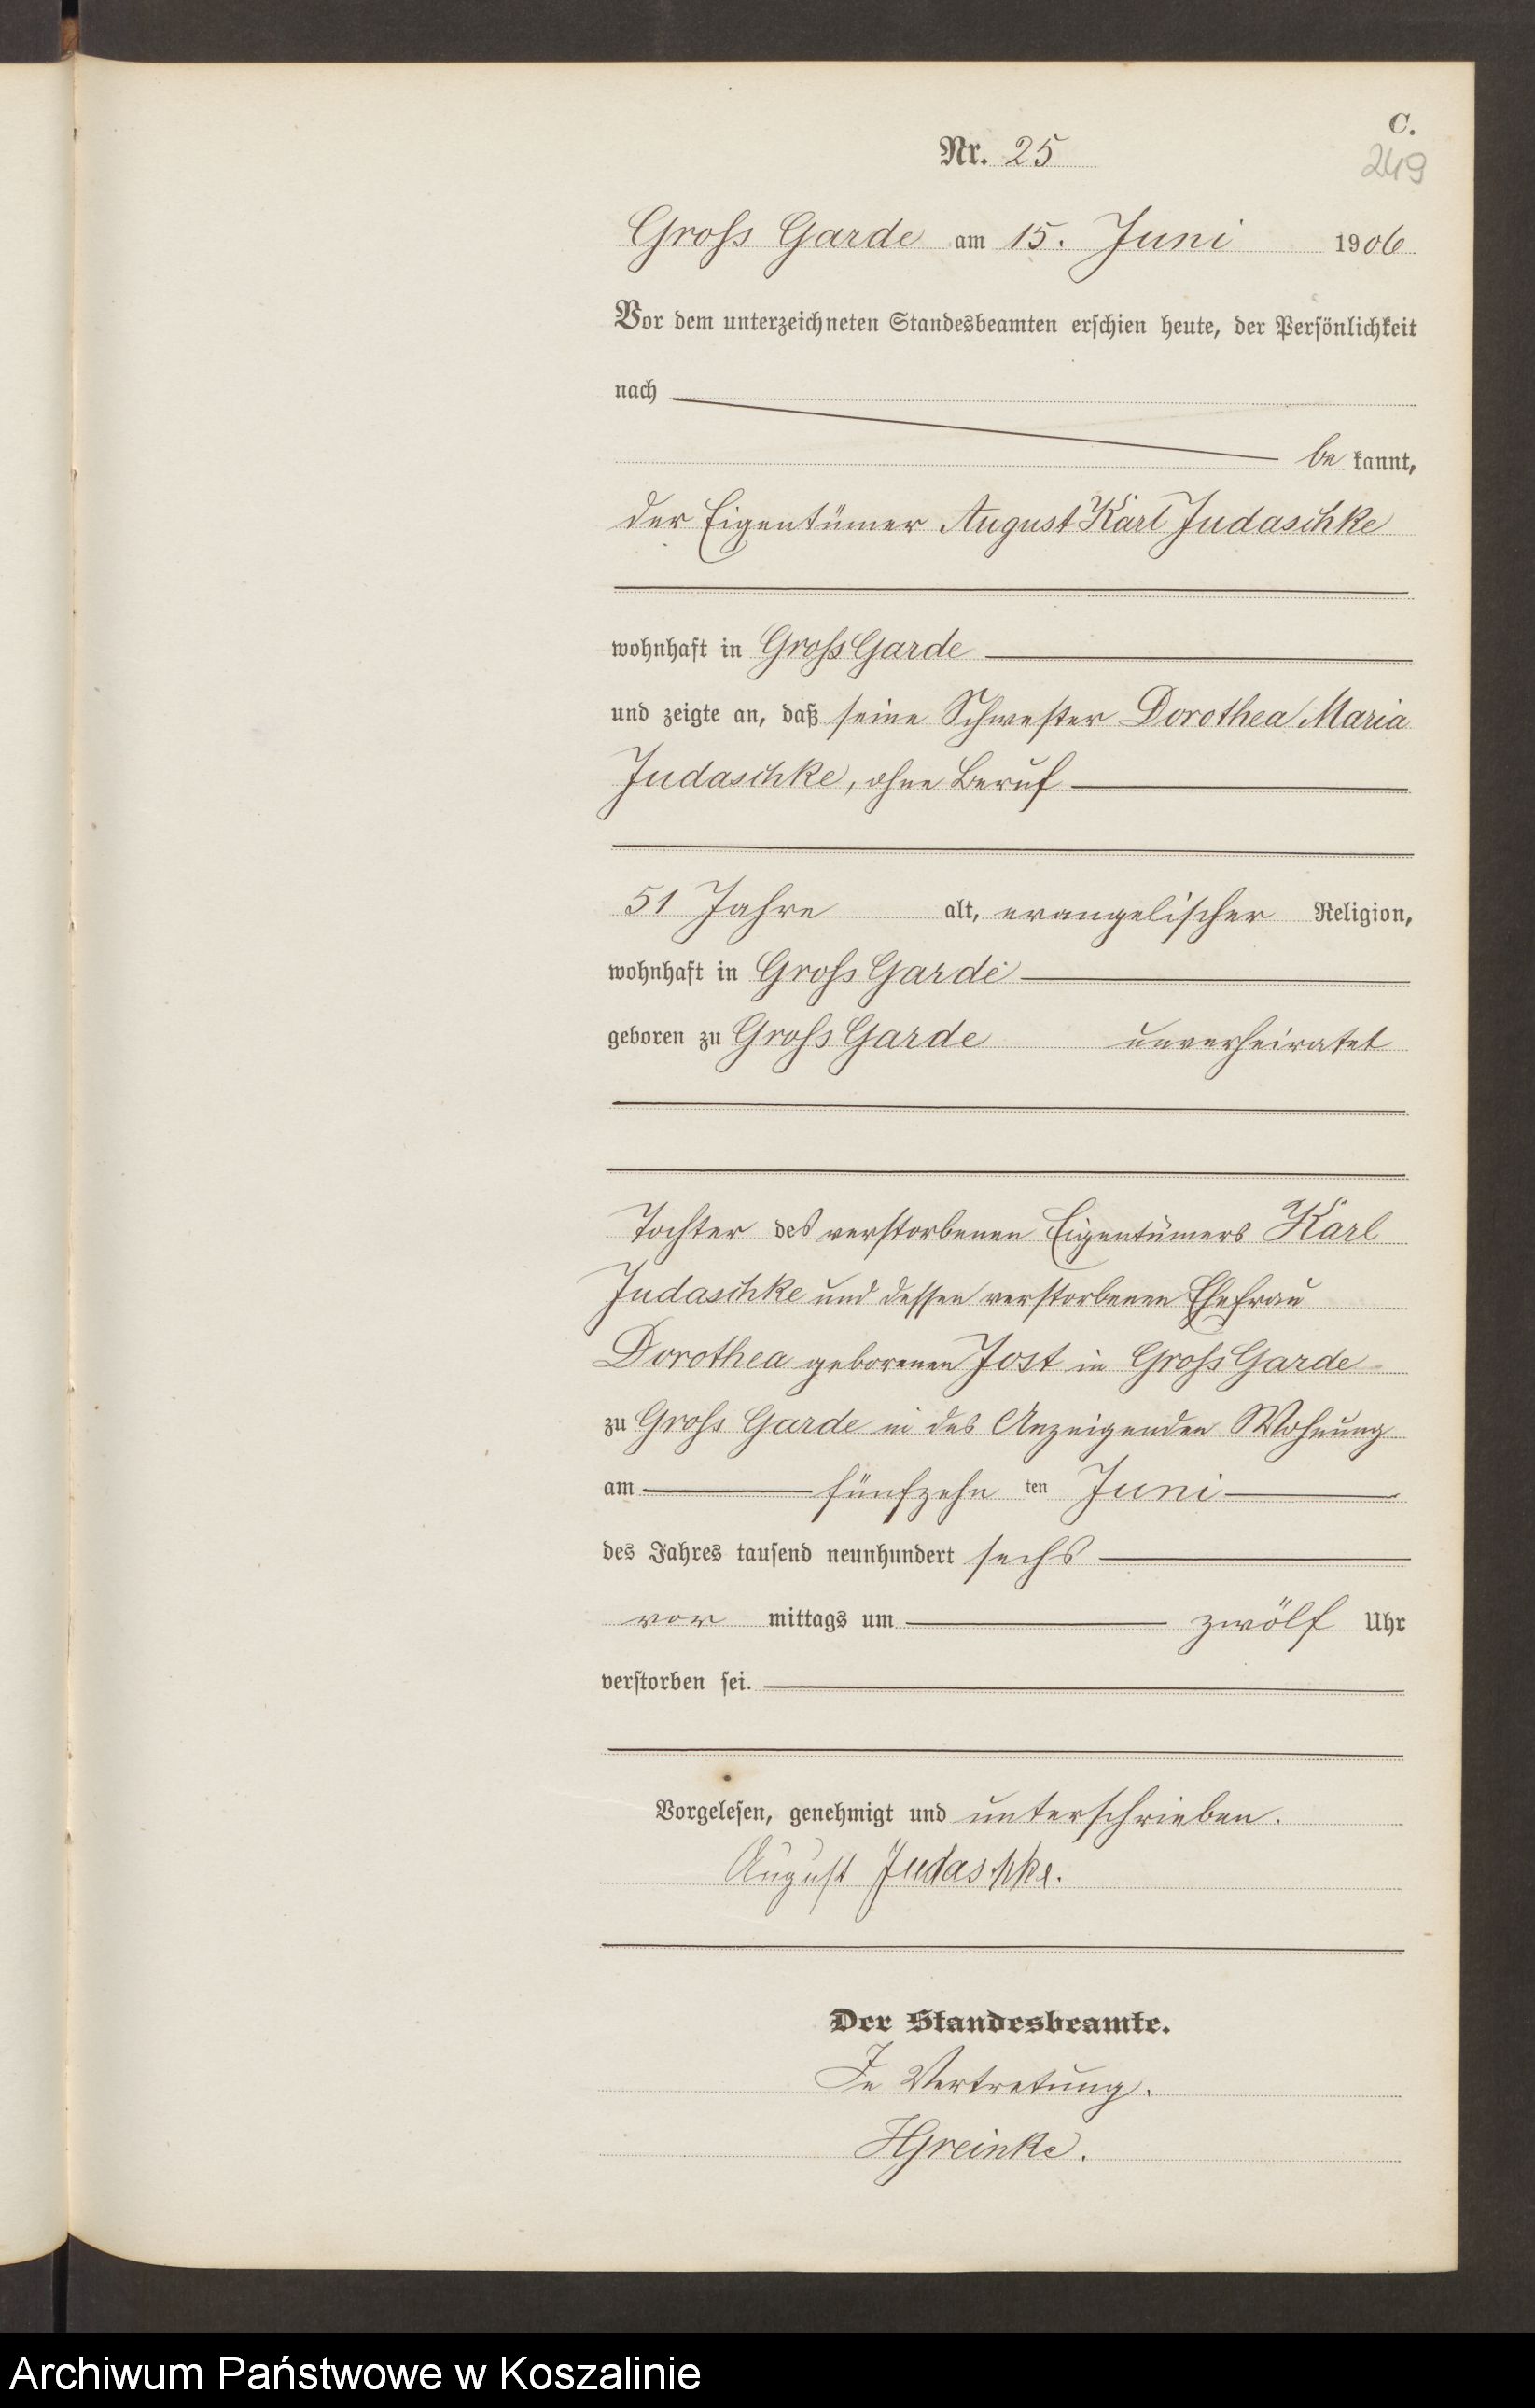 C.
Nr. 25
249
Gross Garde am 15. Juni 1906
Vor dem unterzeichneten Standesbeamten erschien heute, der Persönlichkeit
nach
be kannt,
der Eigentümer August Karl Judaschke
wohnhaft in Gross Garde
und zeigte an, daß seine Schwester Dorothea Maria
Judaschke, ohne Beruf
51 Jahre alt, evangelischer Religion,
wohnhaft in Gross Garde
geboren zu Gross Garde unverheiratet
Tochter des verstorbenen Eigentümers Karl
Judaschke und dessen verstorbenen Ehefrau
Dorothea geborenen Jost in Gross Garde
zu Gross Garde in des Anzeigenden Wohnung
am fünfzehn ten Juni
des Jahres tausend neunhundert sechs
vor mittags um zwölf Uhr
verstorben sei.
Vorgelesen, genehmigt und unterschrieben.
August Judaschke.
Der Standesbeamte.
In Vertretung.
HGreinke.
Archiwum Państwowe w Koszalinie